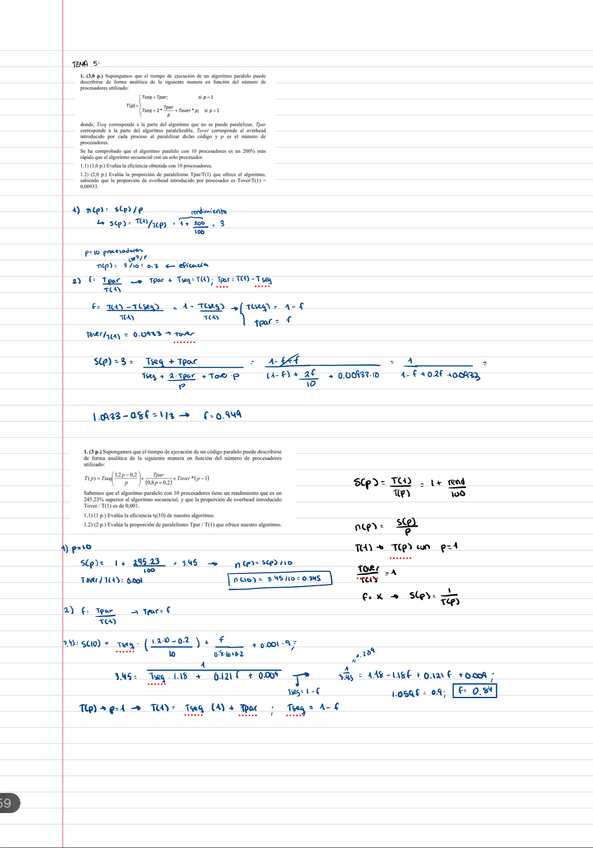 TEMA 5:
1. (3,0 p.) Supongamos que el tiempo de ejecución de un algoritmo paralelo puede
describirse de forma analítica de la siguiente manera en función del número de
procesadores utilizado:
T(p) = { Tseq + Tpar; si p = 1
Tseq + 2 * Tpar/p + Tover * p; si p > 1
donde, Tseq corresponde a la parte del algoritmo que no se puede paralelizar, Tpar
corresponde a la parte del algoritmo paralelizable, Tover corresponde al overhead
introducido por cada proceso al paralelizar dicho código y p es el número de
procesadores.
Se ha comprobado que el algoritmo paralelo con 10 procesadores es un 200% más
rápido que el algoritmo secuencial con un solo procesador.
1.1) (1,0 p.) Evalúa la eficiencia obtenida con 10 procesadores.
1.2) (2,0 p.) Evalúa la proporción de paralelismo Tpar/T(1) que ofrece el algoritmo,
sabiendo que la proporción de overhead introducido por procesador es Tover/T(1) =
0,00933.
1) n(p) = S(p)/p
rendimiento
↳ S(p) = T(1)/T(p) = 1 + 200/100 = 3
p=10 procesadores
n(p) = 3/10 = 0.3 ← eficacia
2) f = Tpar/T(1) → Tpar + Tseq = T(1); Tpar = T(1) - Tseq
f = T(1) - T(seq)/T(1) = 1 - T(seq)/T(1) → { T(seq) = 1 - f
Tpar = f
Tover/T(1) = 0.00933 → Tover
S(p) = 3 = Tseq + Tpar / Tseq + 2·Tpar/p + Tover·p = 1-f+f / (1-f) + 2f/10 + 0.00933·10 = 1 / 1-f+0.2f+0.0933 =
1.0933 - 0.8f = 1/3 → f = 0.949
1. (3 p.) Supongamos que el tiempo de ejecución de un código paralelo puede describirse
de forma analítica de la siguiente manera en función del número de procesadores
utilizado:
T(p) = Tseq((1,2p - 0,2)/p) + Tpar/(0.8p + 0,2) + Tover * (p - 1)
Sabemos que el algoritmo paralelo con 10 procesadores tiene un rendimiento que es un
245,23% superior al algoritmo secuencial, y que la proporción de overhead introducido
Tover / T(1) es de 0,001.
1,1) (1 p.) Evalúa la eficiencia η(10) de nuestro algoritmo.
1.2) (2 p.) Evalúa la proporción de paralelismo Tpar / T(1) que ofrece nuestro algoritmo.
S(p) = T(1)/T(p) = 1 + rend/100
n(p) = S(p)/p
T(1) → T(p) con p=1
Tover/T(1) = 1
f = x → S(p) = 1/T(p)
1) p=10
S(p) = 1 + 245.23/100 = 3.45 → n(p) = S(p)/10
Tover/T(1) = 0.001
n(10) = 3.45/10 = 0.345
2) f = Tpar/T(1) → Tpar = f
3.45 = S(10) = Tseq · (1.2·10 - 0.2 / 10) + f / 0.8·10+0.2 + 0.001·9;
3.45 = 1 / Tseq · 1.18 + 0.121f + 0.009
Tseq = 1 - f
1/3.45 = 1.18 - 1.18f + 0.121f + 0.009;
1.059f = 0.9; f = 0.84
T(p) → p=1 → T(1) = Tseq (1) + Tpar ; Tseq = 1 - f
59